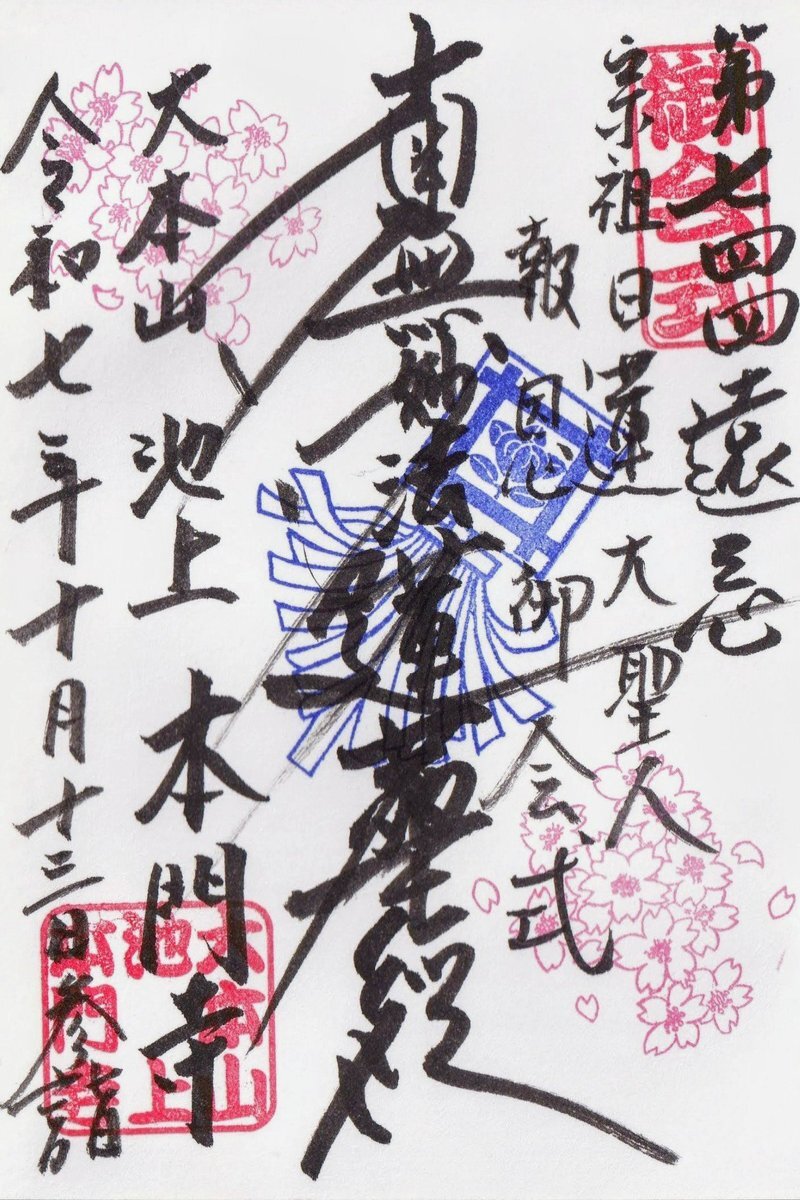 第七四四遠忌
宗祖日蓮大聖人
報恩御会式
南無妙法蓮華経
大本山 池上 本門寺
令和七年十月十三日参詣
御会式
大本山
池上
本門寺